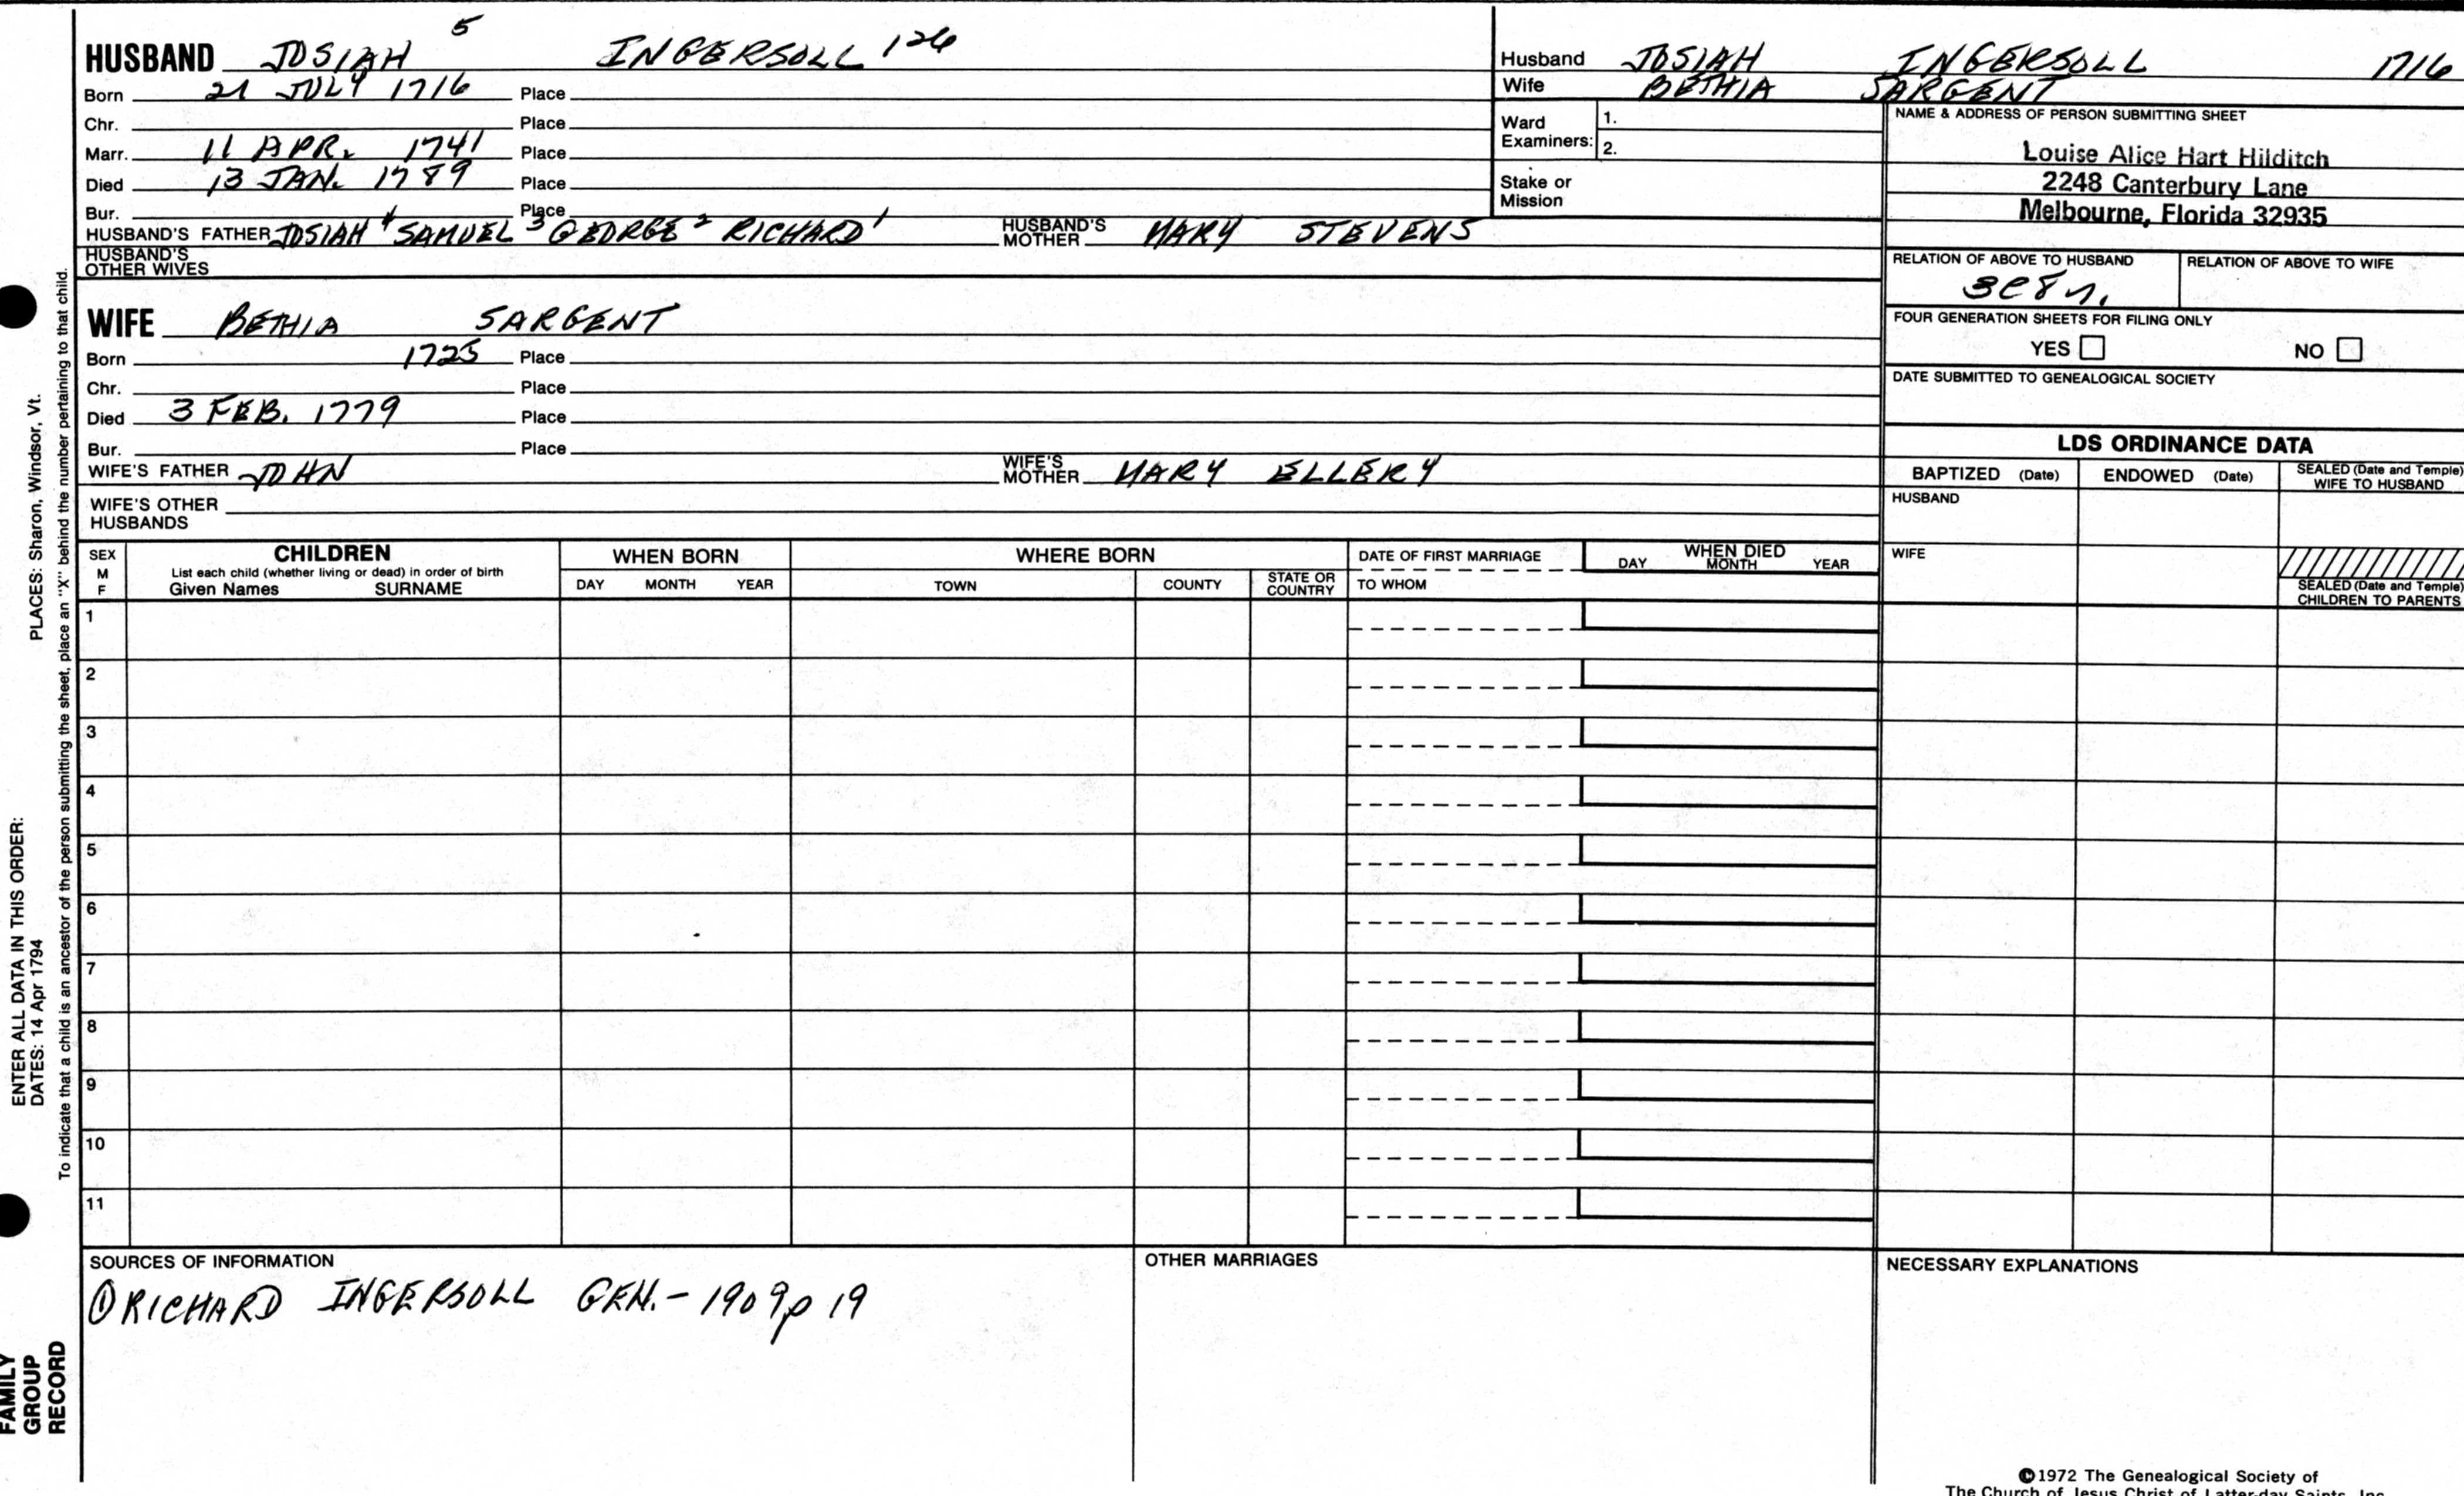 HUSBAND JOSIAH 5 INGERSOLL 126
Born 21 JULY 1716 Place
Chr. Place
Marr. 11 APR. 1741 Place
Died 13 JAN. 1789 Place
Bur. Place
HUSBAND'S FATHER JOSIAH 4 SAMUEL 3 GEORGE 2 RICHARD 1 HUSBAND'S MOTHER MARY STEVENS
HUSBAND'S OTHER WIVES
WIFE BETHIA SARGENT
Born 1725 Place
Chr. Place
Died 3 FEB. 1779 Place
Bur. Place
WIFE'S FATHER JOHN WIFE'S MOTHER MARY ELLERY
WIFE'S OTHER HUSBANDS
Husband JOSIAH INGERSOLL 1716
Wife BETHIA SARGENT
Ward Examiners: 1.
2.
Stake or Mission
NAME & ADDRESS OF PERSON SUBMITTING SHEET
Louise Alice Hart Hilditch
2248 Canterbury Lane
Melbourne, Florida 32935
RELATION OF ABOVE TO HUSBAND RELATION OF ABOVE TO WIFE
FOUR GENERATION SHEETS FOR FILING ONLY
YES NO
DATE SUBMITTED TO GENEALOGICAL SOCIETY
LDS ORDINANCE DATA
BAPTIZED (Date) ENDOWED (Date) SEALED (Date and Temple) WIFE TO HUSBAND
HUSBAND
WIFE
SEALED (Date and Temple) CHILDREN TO PARENTS
SEX M F CHILDREN WHEN BORN WHERE BORN DATE OF FIRST MARRIAGE WHEN DIED
List each child (whether living or dead) in order of birth
Given Names SURNAME DAY MONTH YEAR TOWN COUNTY STATE OR COUNTRY TO WHOM DAY MONTH YEAR
1
2
3
4
5
6
7
8
9
10
11
SOURCES OF INFORMATION OTHER MARRIAGES NECESSARY EXPLANATIONS
① RICHARD INGERSOLL GEN. - 1909 p 19
©1972 The Genealogical Society of
The Church of Jesus Christ of Latter-day Saints, Inc.
PLACES: Sharon, Windsor, Vt.
ENTER ALL DATA IN THIS ORDER:
DATES: 14 Apr 1794
To indicate that a child is an ancestor of the person submitting the sheet, place an "X" behind the number pertaining to that child.
FAMILY
GROUP
RECORD